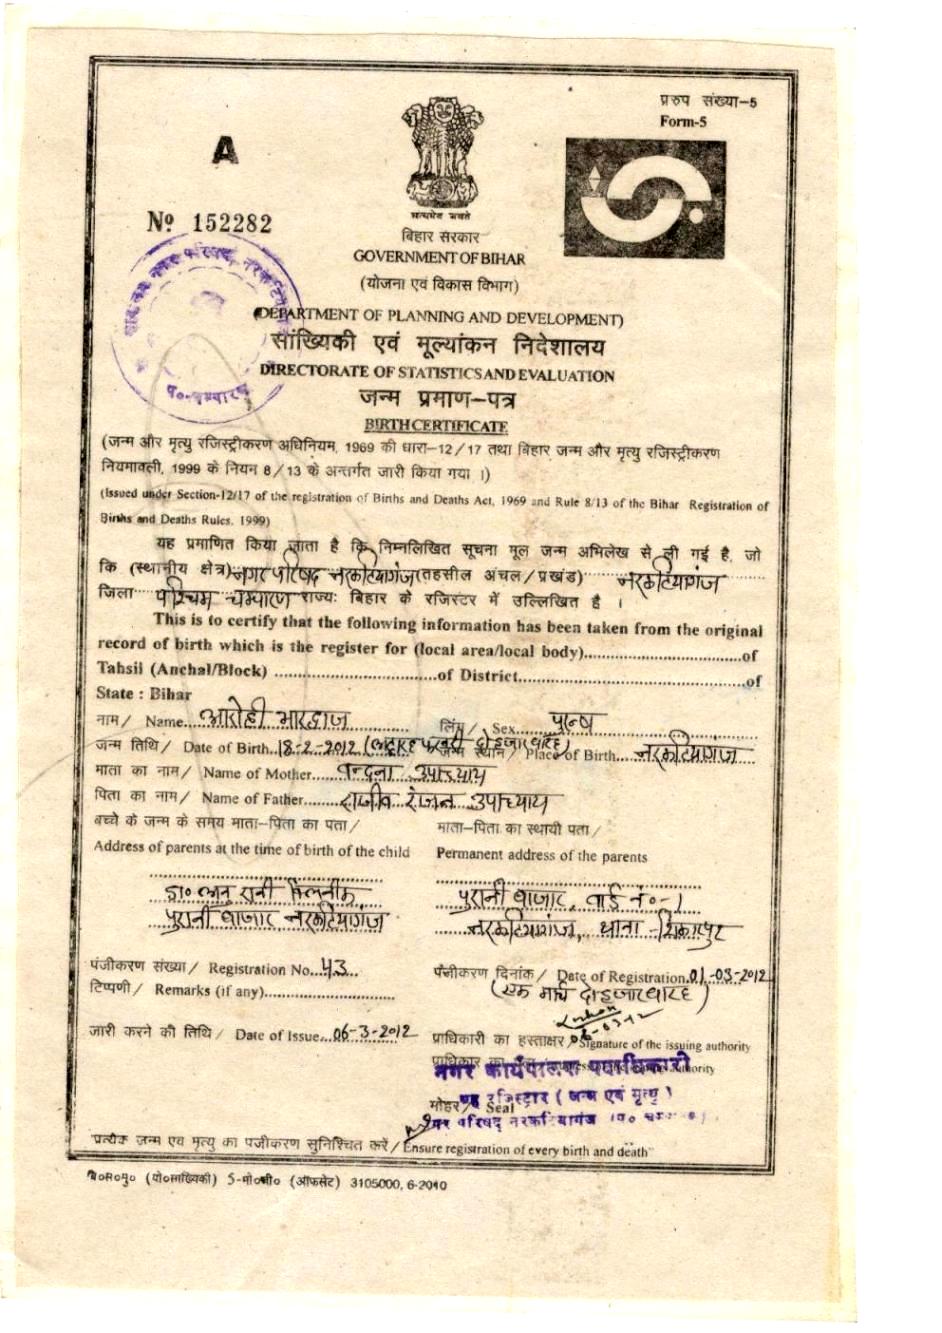 प्ररुप संख्या-5
Form-5
A
Nº 152282
सत्यमेव जयते
बिहार सरकार
GOVERNMENT OF BIHAR
(योजना एवं विकास विभाग)
(DEPARTMENT OF PLANNING AND DEVELOPMENT)
सांख्यिकी एवं मूल्यांकन निदेशालय
DIRECTORATE OF STATISTICS AND EVALUATION
प०-चम्पारण
जन्म प्रमाण-पत्र
BIRTH CERTIFICATE
(जन्म और मृत्यु रजिस्ट्रीकरण अधिनियम, 1969 की धारा-12/17 तथा बिहार जन्म और मृत्यु रजिस्ट्रीकरण
नियमावली, 1999 के नियन 8/13 के अन्तर्गत जारी किया गया ।)
(Issued under Section-12/17 of the registration of Births and Deaths Act, 1969 and Rule 8/13 of the Bihar Registration of
Births and Deaths Rules, 1999)
यह प्रमाणित किया जाता है कि निम्नलिखित सूचना मूल जन्म अभिलेख से ली गई है, जो
कि (स्थानीय क्षेत्र) नगर परिषद नरकटियागंज (तहसील अंचल/प्रखंड) नरकटियागंज
जिला पश्चिम चम्पारण राज्यः बिहार के रजिस्टर में उल्लिखित है ।
This is to certify that the following information has been taken from the original
record of birth which is the register for (local area/local body)..............................of
Tahsil (Anchal/Block) ..............................of District..............................of
State : Bihar
नाम/ Name... आरोही भारद्वाज लिंग/ Sex. पुरुष
जन्म तिथि/ Date of Birth. 18-2-2012 (अट्ठारह फरवरी दो हजार बारह) जन्म स्थान/ Place of Birth.... नरकटियागंज
माता का नाम/ Name of Mother....... वन्दना उपाध्याय
पिता का नाम/ Name of Father........ राजीव रंजन उपाध्याय
बच्चे के जन्म के समय माता-पिता का पता/ माता-पिता का स्थायी पता/
Address of parents at the time of birth of the child Permanent address of the parents
डा० रानी क्लिनीक पुरानी बाजार, वार्ड नं०-1
पुरानी बाजार नरकटियागंज नरकटियागंज, थाना-शिकारपुर
पंजीकरण संख्या/ Registration No... 43... पंजीकरण दिनांक/ Date of Registration. 01-03-2012
टिप्पणी/ Remarks (if any).............................. (एक मार्च दो हजार बारह)
जारी करने की तिथि/ Date of Issue... 06-3-2012 प्राधिकारी का हस्ताक्षर/ Signature of the issuing authority
नगर कार्यपालक पदाधिकारी
मोहर/ Seal सह रजिस्ट्रार (जन्म एवं मृत्यु)
नगर परिषद् नरकटियागंज
"प्रत्येक जन्म एवं मृत्यु का पजीकरण सुनिश्चित करें/ Ensure registration of every birth and death"
(पो०सांख्यिकी) 5-मो०सी० (ऑफसेट) 3105000, 6-2010